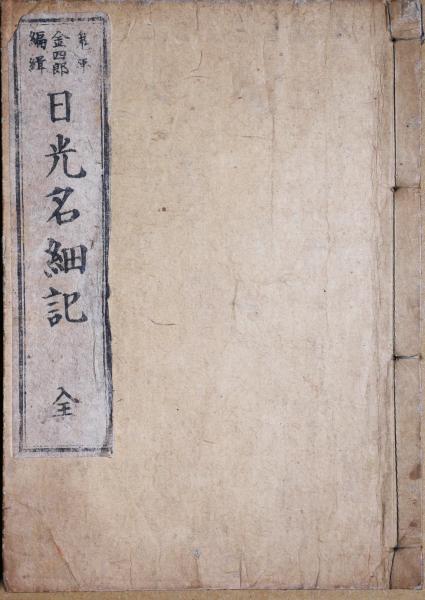 金四郎
編緝
日光名細記
全